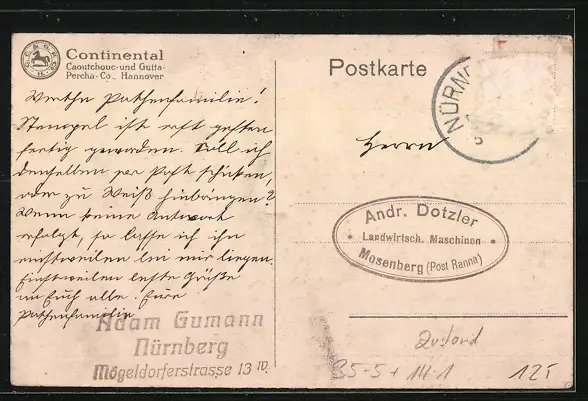 Continental
Caoutchouc-und Gutta-
Percha-Co., Hannover
Postkarte
NÜRN
Werthe Pathenfamilie!
Stempel ist erst gestern
fertig geworden. Soll ich
denselben per Post schicken,
oder zu Weiß hinbringen?
Wenn keine Antwort
erfolgt, so lasse ich ihn
einstweilen bei mir liegen.
Einstweilen beste Grüße
an Euch alle. Eure
Pathenfamilie
Adam Gumann
Nürnberg
Mögeldorferstrasse 13 IV.
Herrn
Andr. Dotzler
* Landwirtsch. Maschinen *
Mosenberg (Post Ranna)
35-5+ 14-1
125